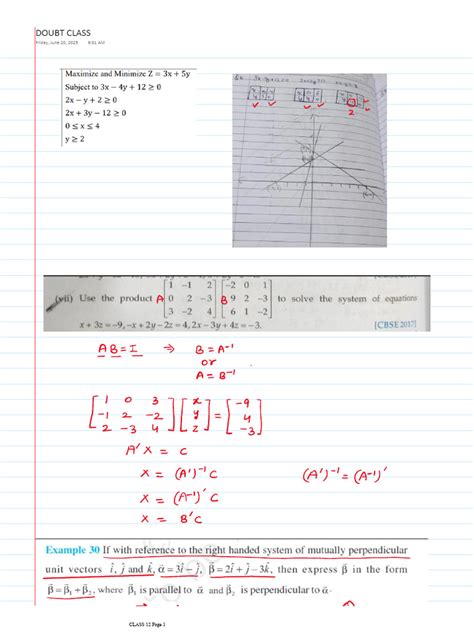 DOUBT CLASS
Friday, June 20, 2025 8:01 AM
Maximize and Minimize Z = 3x + 5y
Subject to 3x − 4y + 12 ≥ 0
2x − y + 2 ≥ 0
2x + 3y − 12 ≥ 0
0 ≤ x ≤ 4
y ≥ 2
2
(vii) Use the product A [1 −1 2
0 2 −3
3 −2 4] B [−2 0 1
9 2 −3
6 1 −2] to solve the system of equations
x + 3z = −9, −x + 2y − 2z = 4, 2x − 3y + 4z = −3. [CBSE 2017]
AB = I ⇒ B = A⁻¹
or
A = B⁻¹
[1 0 3
-1 2 -2
2 -3 4] [x
y
z] = [-9
4
-3]
A'X = C
X = (A')⁻¹C (A')⁻¹ = (A⁻¹)'
X = (A⁻¹)'C
X = B'C
Example 30 If with reference to the right handed system of mutually perpendicular
unit vectors î, ĵ and k̂, α⃗ = 3î − ĵ, β⃗ = 2î + ĵ − 3k̂, then express β⃗ in the form
β⃗ = β⃗₁ + β⃗₂, where β⃗₁ is parallel to α⃗ and β⃗₂ is perpendicular to α⃗.
CLASS 12 Page 1